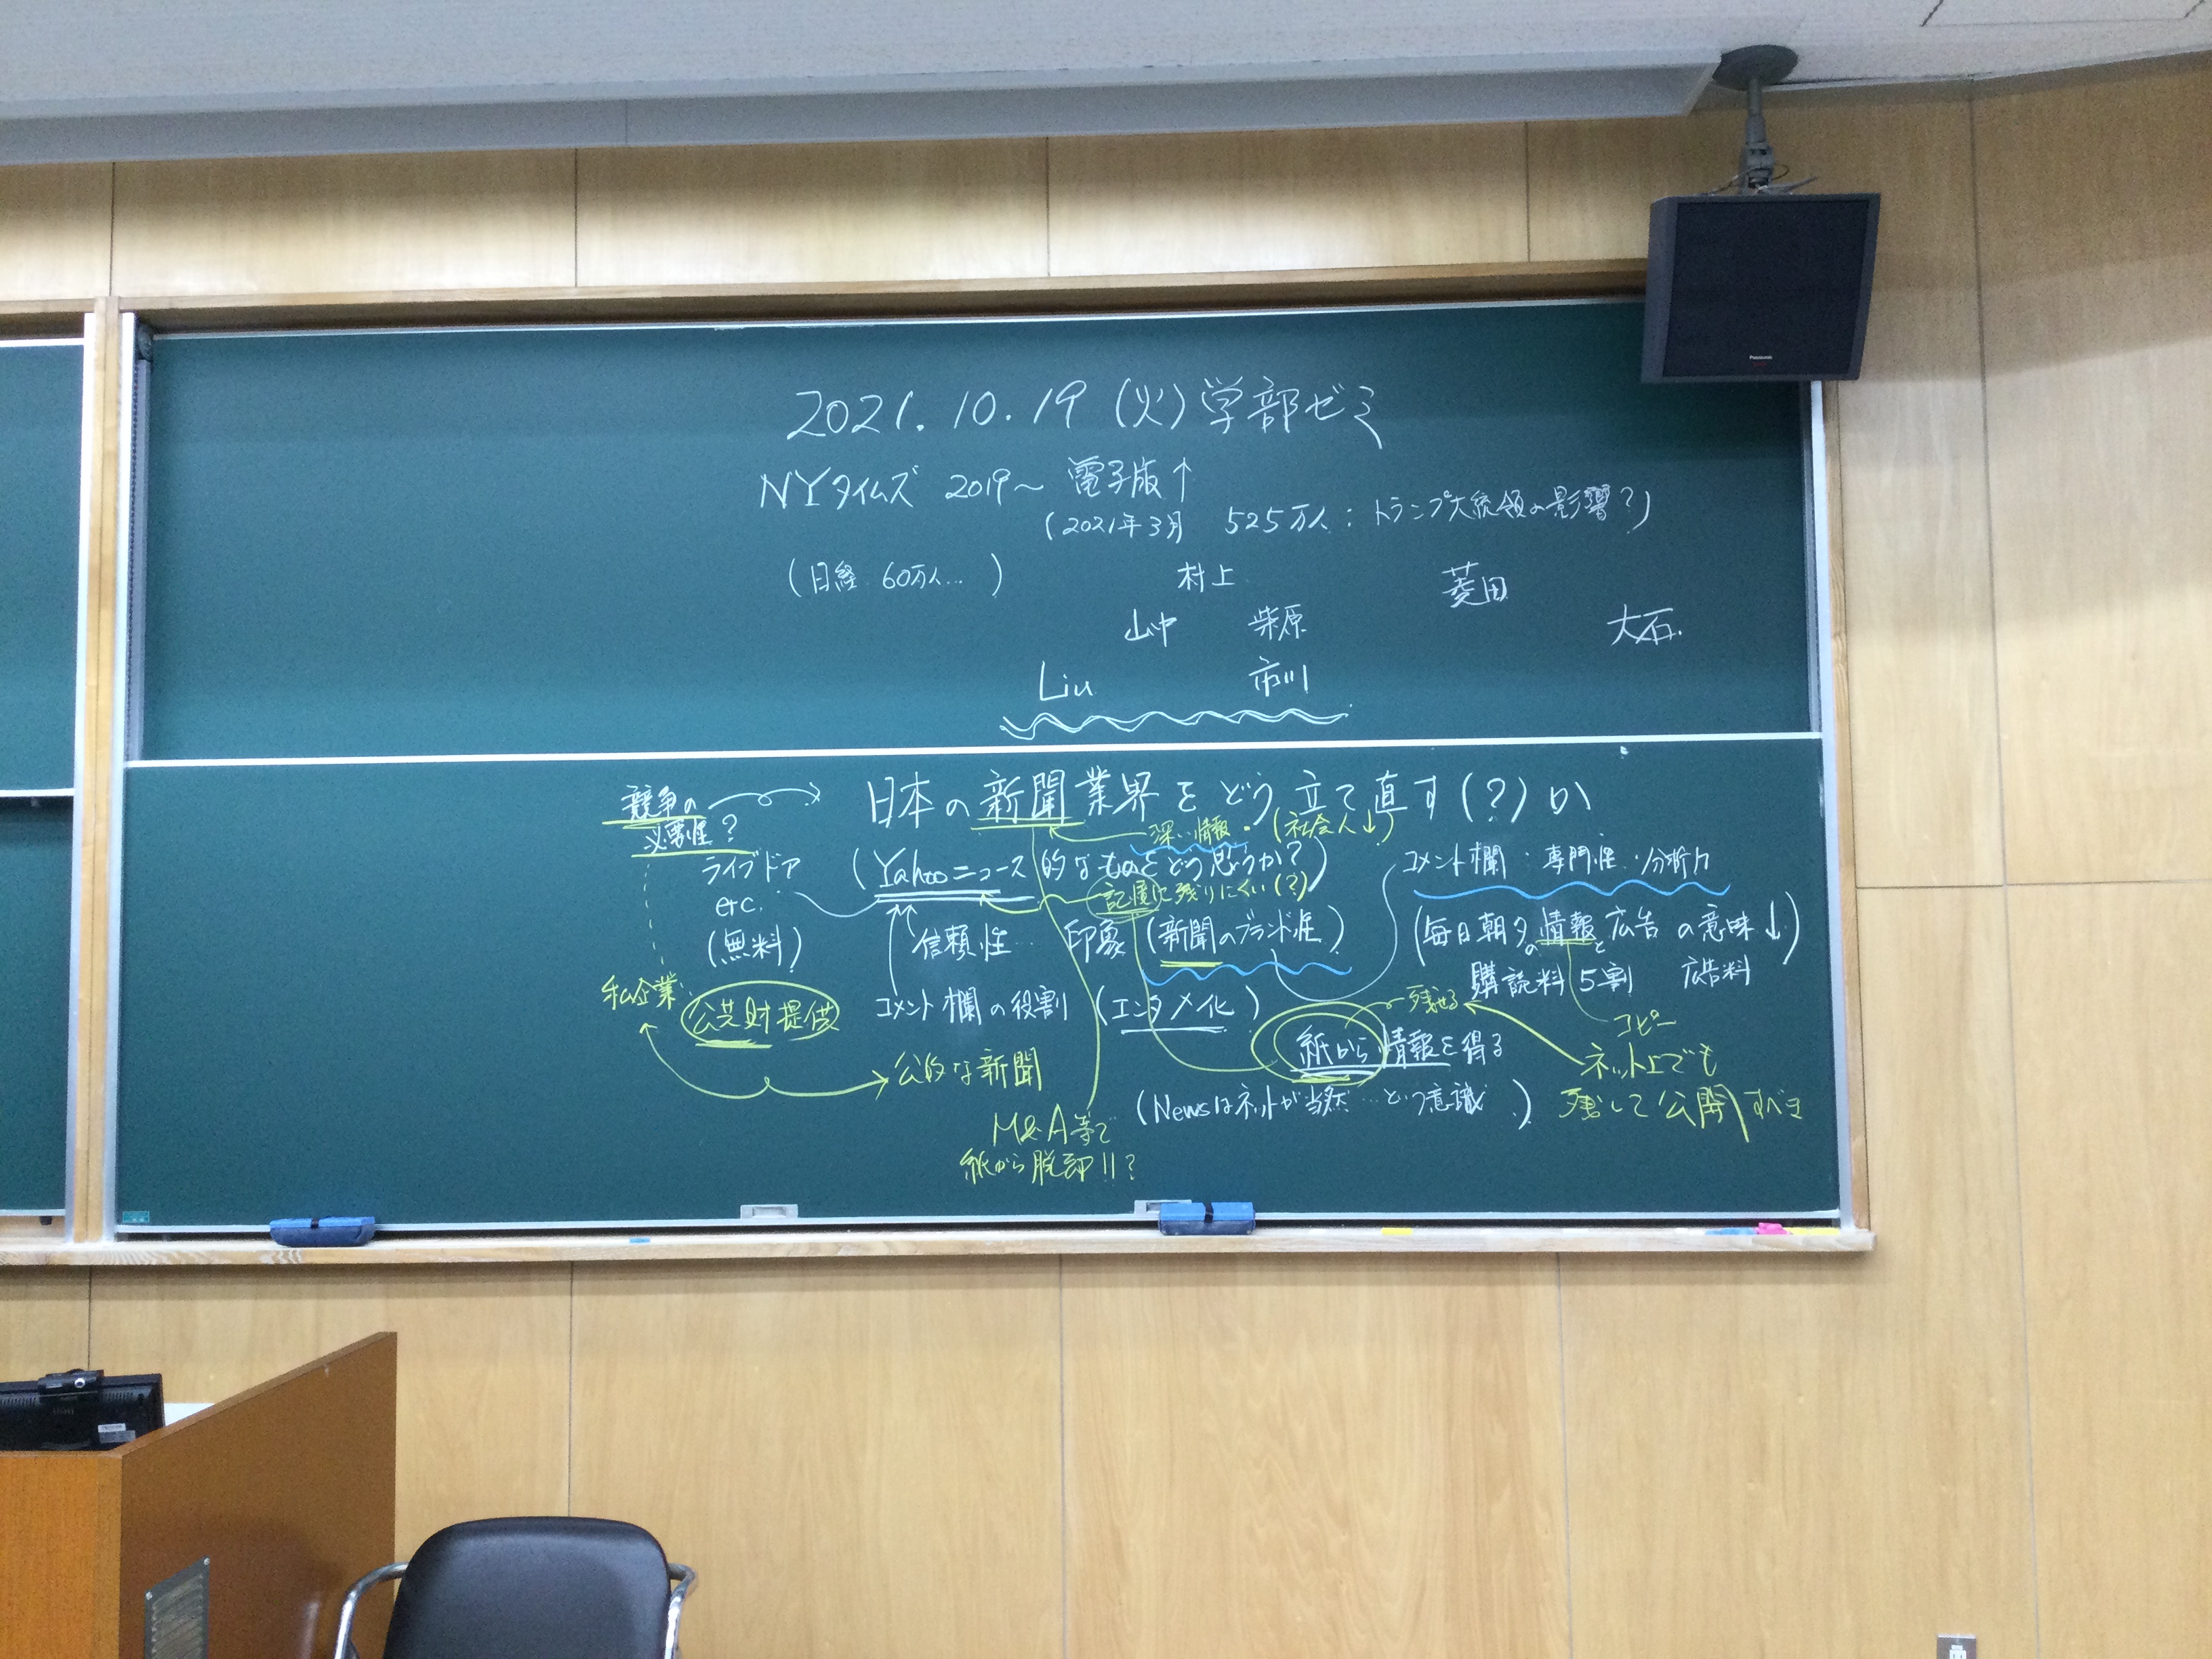 2021.10.19 (火) 学部ゼミ
NYタイムズ 2019〜 電子版↑
(2021年3月 525万人:トランプ大統領の影響?)
(日経 60万人... )
村上
菱田
山中 柴原
大石
Liu 市川
Panasonic
競争の
必要性?
日本の新聞業界をどう立て直す(?)か
深い情報・(社会人↓)
ライブドア
etc.
(無料)
(Yahooニュース的なものをどう思うか?)
記憶に残りにくい(?)
コメント欄・専門性・分析力
信頼性... 印象 (新聞のブランド性)
(毎日朝夕の情報と広告の意味↓)
購読料 5割 広告料
私企業
公共財提供
コメント欄の役割 (エンタメ化)
残せる
コピー
紙から情報を得る
公的な新聞
(Newsはネットが当然...という意識 )
ネット上でも
残して公開すべき
M&A等で
紙から脱却!!?